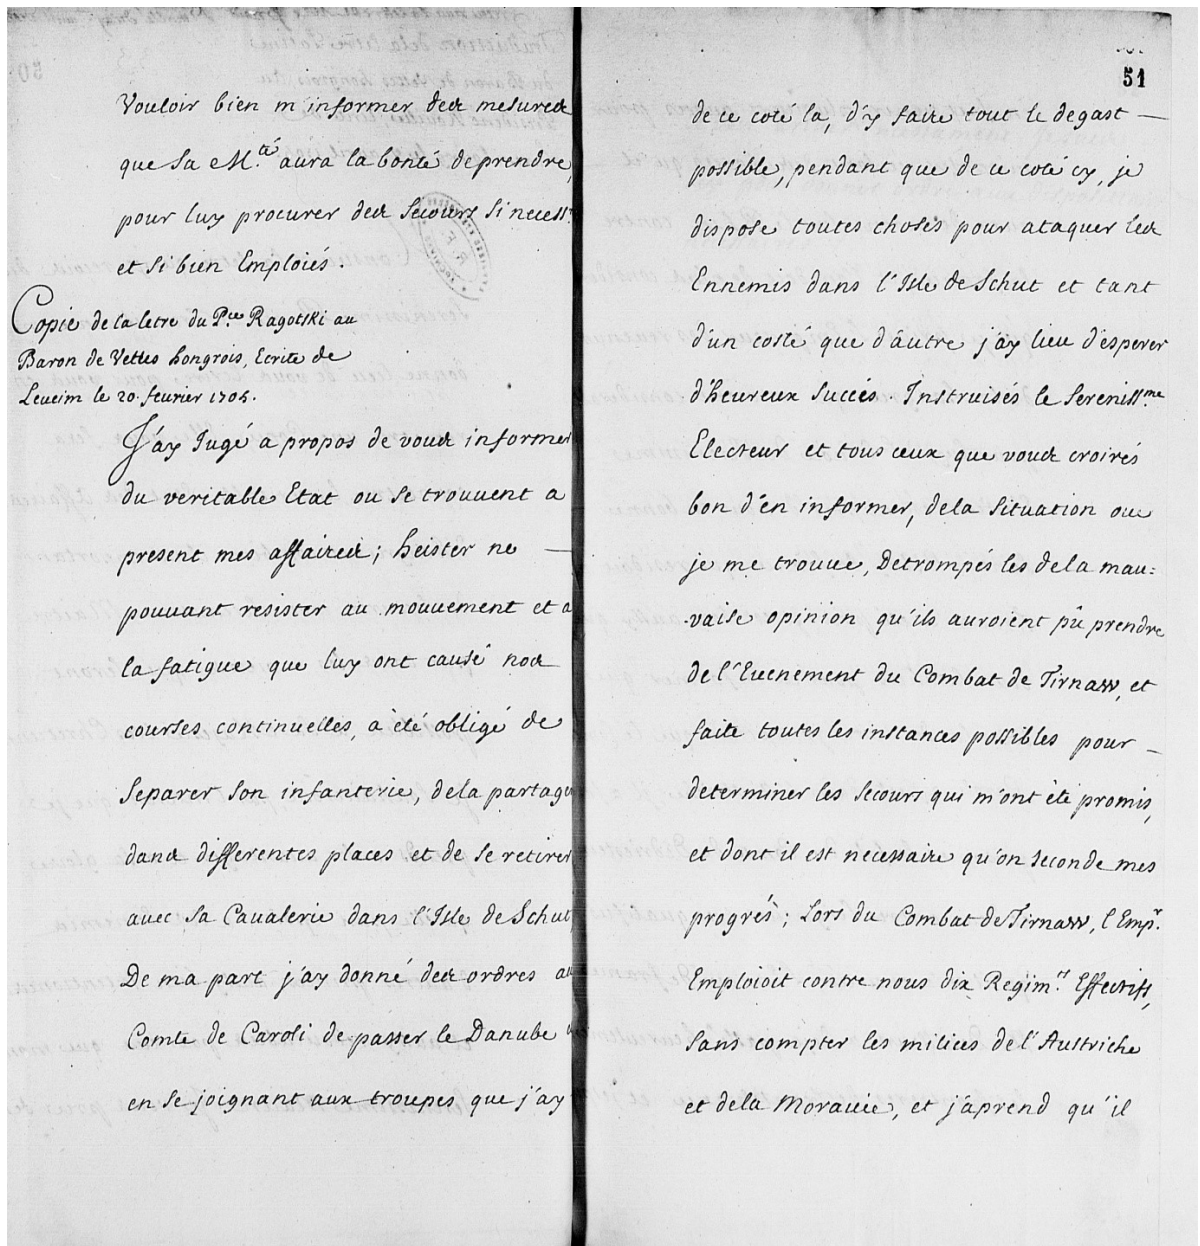 Vouloir bien m'informer des mesures
que Sa M.té aura la bonté de prendre,
pour luy procurer des secours si necess.
et si bien Emploiés.
Copie de la letre du P.ce Ragotski au
Baron de Vettes hongrois, Ecrite de
Leveim le 20. fevrier 1705.
J'ay Jugé a propos de vous informer
du veritable Etat ou se trouvent a
present mes affaires; heister ne —
pouvant resister au mouvement et a
la fatigue que luy ont causé nos
courses continuelles, a été obligé de
separer son infanterie, de la partager
dans differentes places et de se retirer
avec sa Cavalerie dans l'Isle de Schut,
De ma part j'ay donné des ordres au
Comte de Caroli de passer le Danube
en se joignant aux troupes que j'ay
51
de ce coté la, d'y faire tout le degast —
possible, pendant que de ce coté cy, je
dispose toutes choses pour ataquer les
Ennemis dans l'Isle de Schut et tant
d'un costé que d'autre j'ay lieu d'esperer
d'heureux succés. Instruisés le Sereniss.me
Electeur et tous ceux que vous croirés
bon d'en informer, de la situation ou
je me trouve, Detrompés les de la mau=
vaise opinion qu'ils auroient pû prendre
de l'Evenement du Combat de Tirnaw, et
faite toutes les instances possibles pour —
determiner les secours qui m'ont été promis,
et dont il est necessaire qu'on seconde mes
progrés; Lors du Combat de Tirnaw, l'Emp.r
Emploioit contre nous dix Regim.ts Effectifs,
sans compter les milices de l'Austriche
et de la Moravie, et j'aprend qu'il